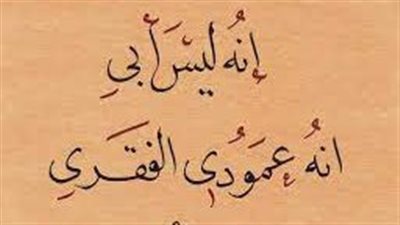 إنهُ ليسَ أبي
انهُ عمودي الفقري